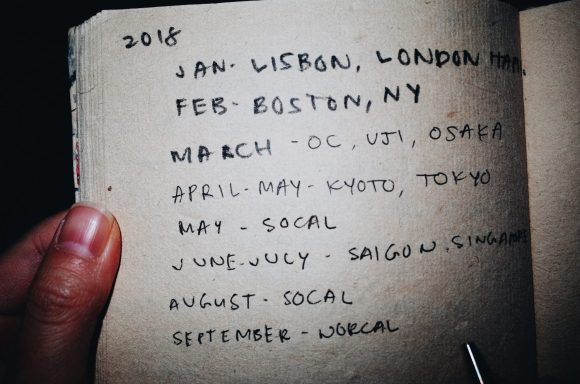 2018
JAN- LISBON, LONDON
FEB- BOSTON, NY
MARCH - OC, UJI, OSAKA
APRIL-MAY- KYOTO, TOKYO
MAY - SOCAL
JUNE-JULY - SAIGON, SINGAPORE
AUGUST - SOCAL
SEPTEMBER - NORCAL